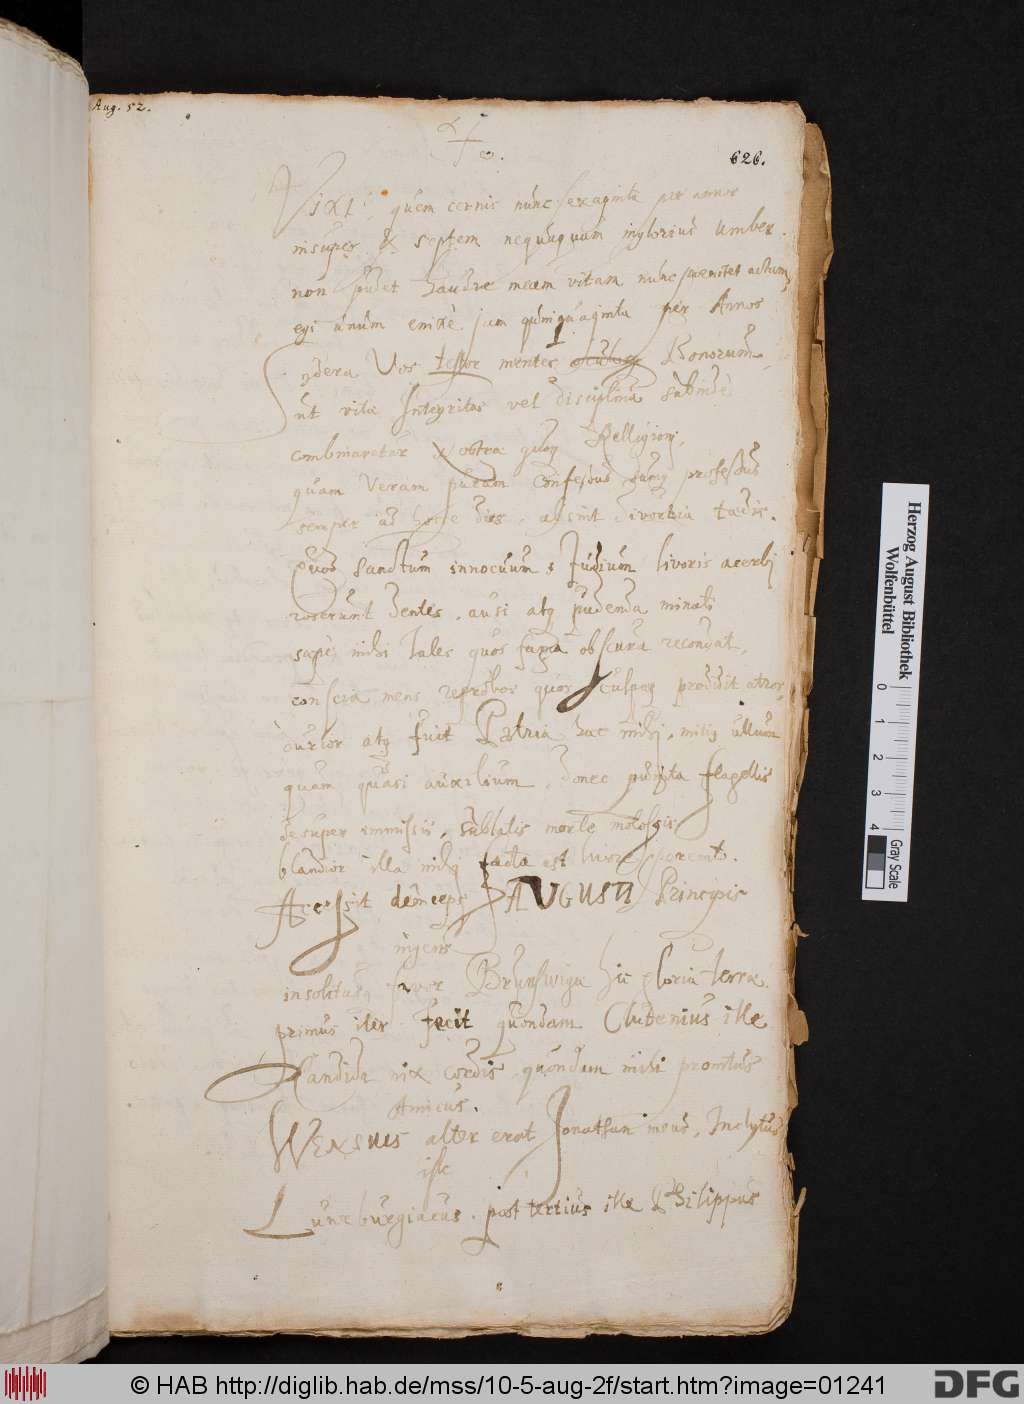 Aug. 52.
626.
Vixi, quem cernis nunc sexaginta per annos
insuper & septem nequaquam inglorius umber.
non pudet haudve meam vitam nunc poenitet actum,
egi unum enixè jam quinquaginta per Annos
Sydera Vos testor mentes Bonorum
ut vitae Integritas vel disciplina subinde
combinaretur Relligioni,
quam Veram puram confessus professus
semper ad hosce dies, absint divortia taedis.
Quod sanctum innocuum studium livoris acerbi
roserunt dentes, ausi atq pudenda minati
saepè mihi tales quos fuga obscura recondat,
conscia mens reprobos quos culpaq prodidit atrox,
durior atq fuit Patria haec mihi, mitis ullum
quam quasi auxilium, donec punita flagellis
desuper immissis, sublatis morte molossis
blandior illa mihi facta est livore perempto.
Accessit deinceps AUGUSTI Principis
ingens
insolitusq favor Brunswigae hic gloria terrae.
primus iter fecit quondam Cludenius ille
Candida nix cordis quondam mihi promtus
Amicus.
WENSIUS alter erat Jonathan meus, Inclytus
iste
Luneburgiacus. post tertius ille Philippus
Herzog August Bibliothek
Wolfenbüttel
0 1 2 3 4
Gray Scale
© HAB http://diglib.hab.de/mss/10-5-aug-2f/start.htm?image=01241
DFG